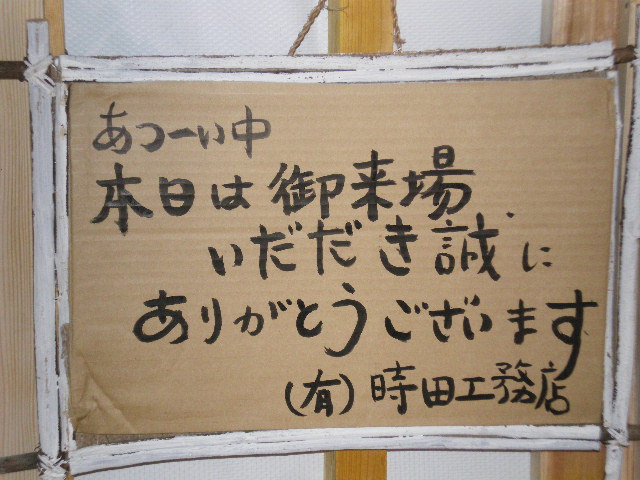 あつーい中
本日は御来場
いだだき誠に
ありがとうございます
(有)時田工務店